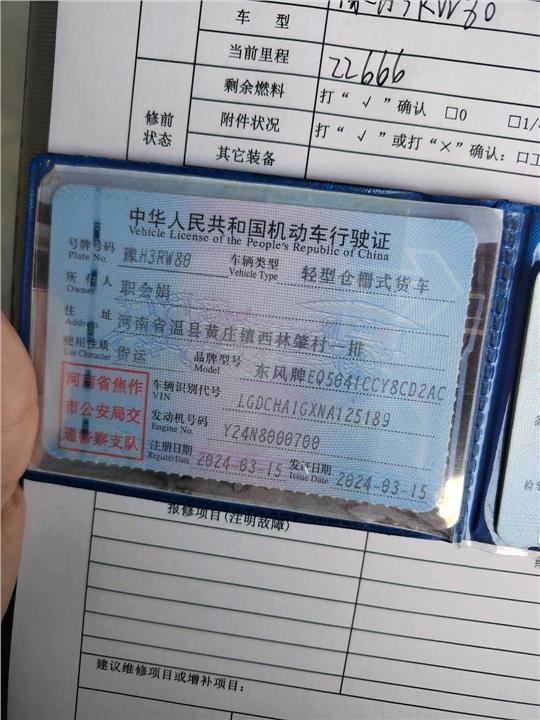 车 型
当前里程 22666
修前状态
剩余燃料 打“√”确认 □0 □1/4
附件状况 打“√”或打“×”确认：□工
其它装备
中华人民共和国机动车行驶证
Vehicle License of the People's Republic of China
号牌号码 豫H3RW80 车辆类型 轻型仓栅式货车
Plate No. Vehicle Type
所有人 职会娟
Owner
住 址 河南省温县黄庄镇西林肇村一排
Address
使用性质 货运 品牌型号 东风牌EQ5041CCY8CD2AC
Use Character Model
河南省焦作
市公安局交
通警察支队
车辆识别代号 LGDCHA1GXNA125189
VIN
发动机号码 Y24N8000700
Engine No.
注册日期 2024-03-15 发证日期 2024-03-15
Register Date Issue Date
报修项目(注明故障)
建议维修项目或增补项目：